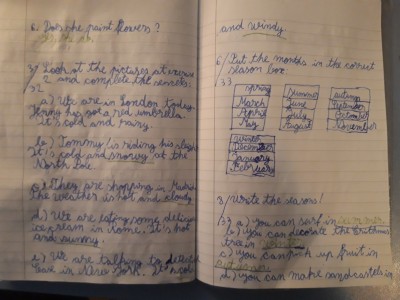 6. Does she paint flowers?
3/ Look at the pictures at exercise
2 and complete the sentences.
32
a) We are in London today.
Jenny has got a red umbrella.
It's cold and rainy.
b) Tommy is riding his sleigh.
It's cold and snowy at the
North Pole.
c) They are shopping in Madrid.
The weather is hot and cloudy.
d) We are eating some delicious
ice cream in Rome. It's hot
and sunny.
e) We are talking to
in New York. It's cold
and windy.
6/ Put the months in the correct
season box.
33
spring
March
April
May
summer
June
July
August
autumn
September
October
November
winter
December
January
February
8/ Write the seasons!
33 a) You can surf in summer
b) You can decorate the Christmas
tree in winter
c) You can pick up fruit in
autumn.
d) You can make sandcastles in